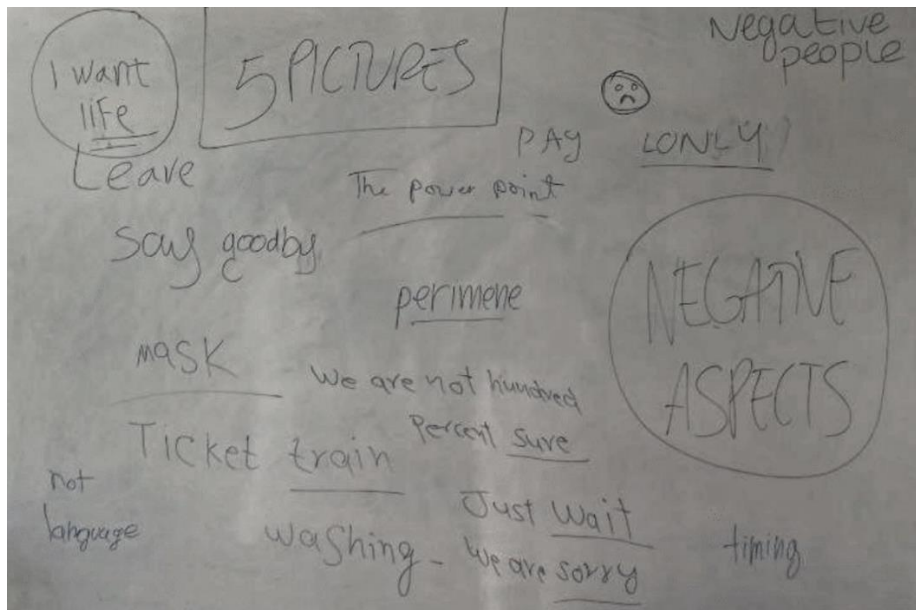 I want
life
5 PICTURES
Negative
people
PAY
LONLY!
Leave
The power point
Say goodby
perimene
NEGATIVE
ASPECTS
mask
We are not hundred
Percent sure
Ticket train
not
language
Just wait
washing - We are sorry
timing